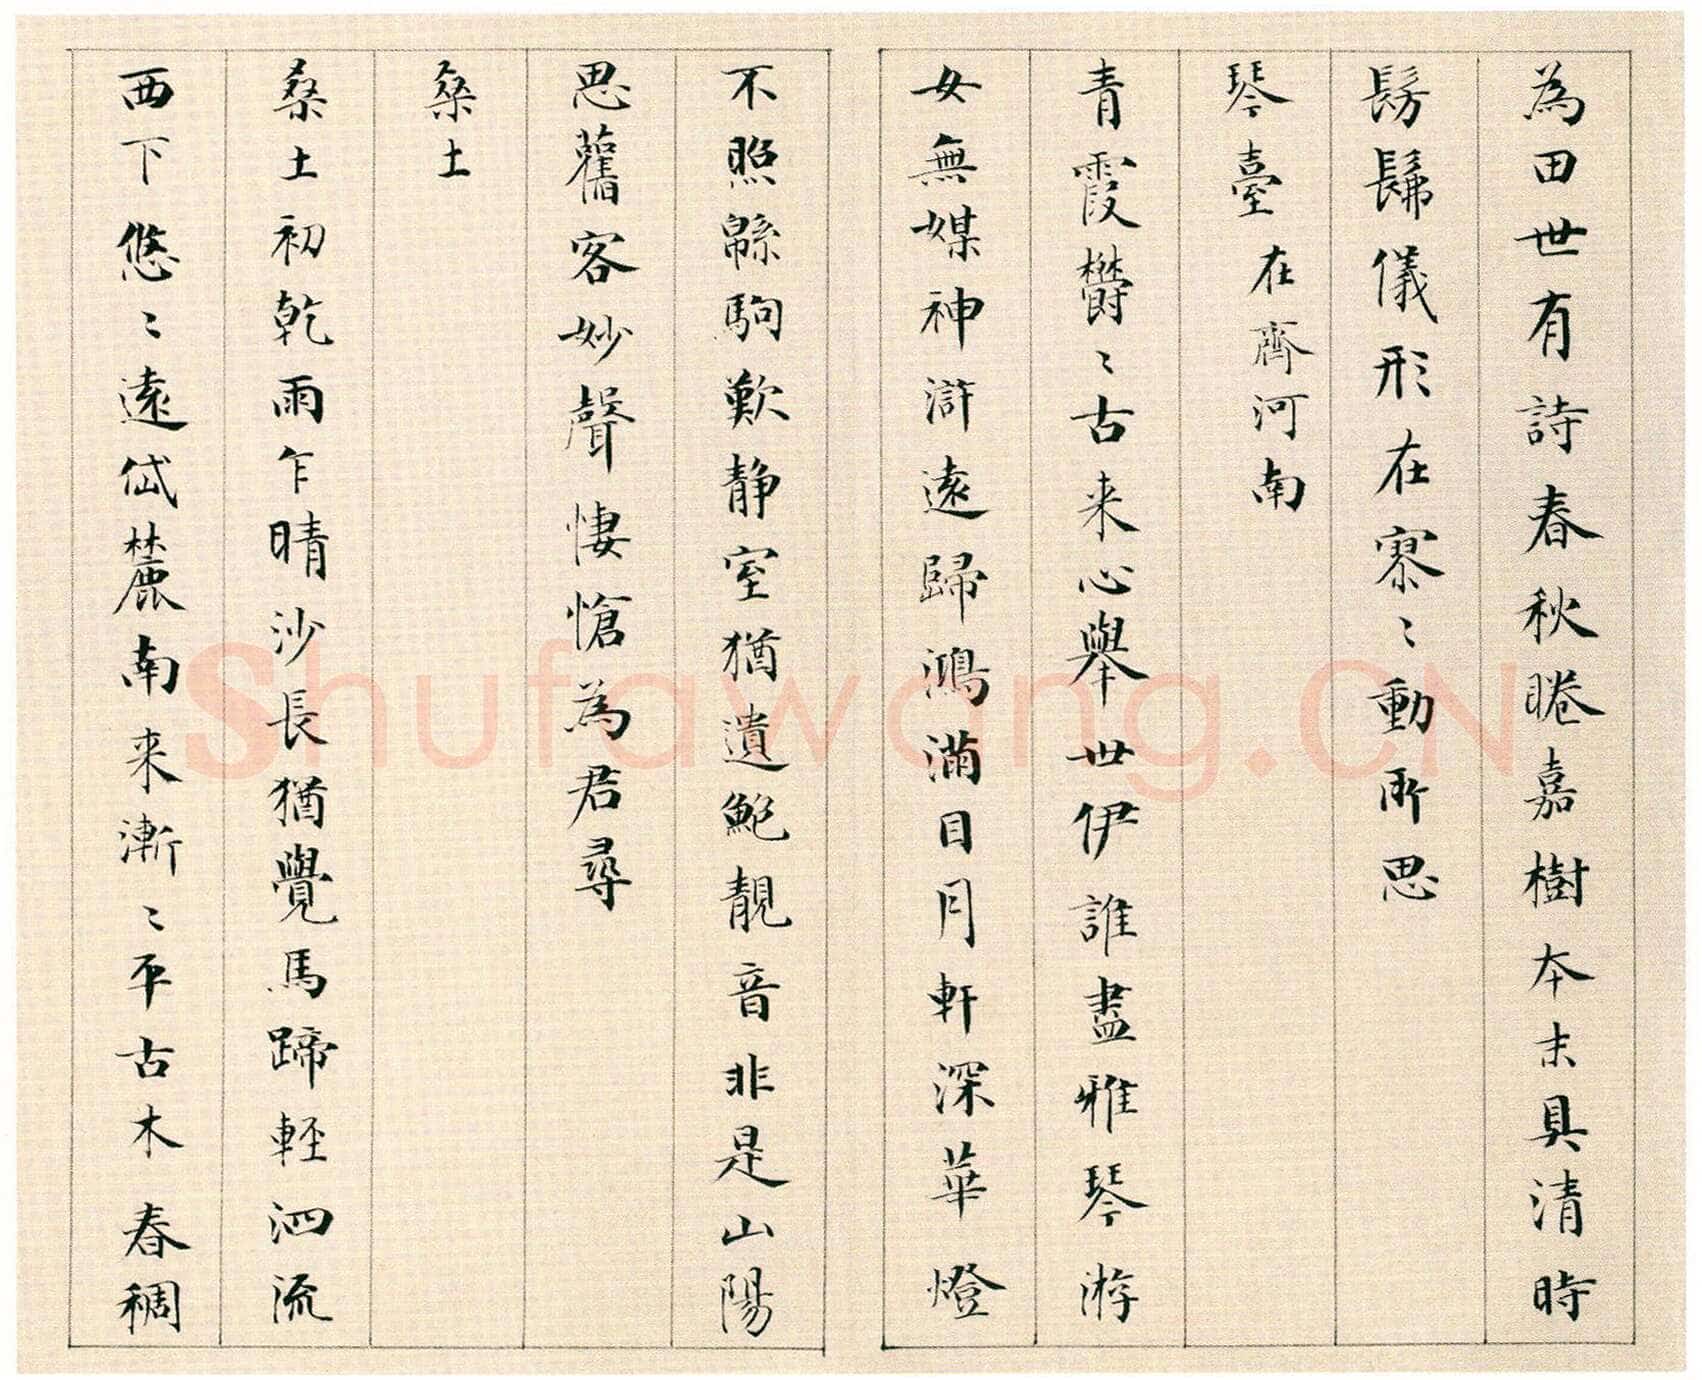 為田世有詩春秋睠嘉樹本末具清時
髣髴儀形在寥〻動所思
琴臺在齊河南
青霞鬱〻古来心舉世伊誰盡雅琴游
女無媒神滸遠歸鴻滿目月軒深華燈
不照緜駒歎靜室猶遺鮑靚音非是山陽
思舊客妙聲悽愴為君尋
桑土
桑土初乾雨乍晴沙長猶覺馬蹄輕泗流
西下悠〻遠岱麓南来漸〻平古木春稠
Shufawang.CN